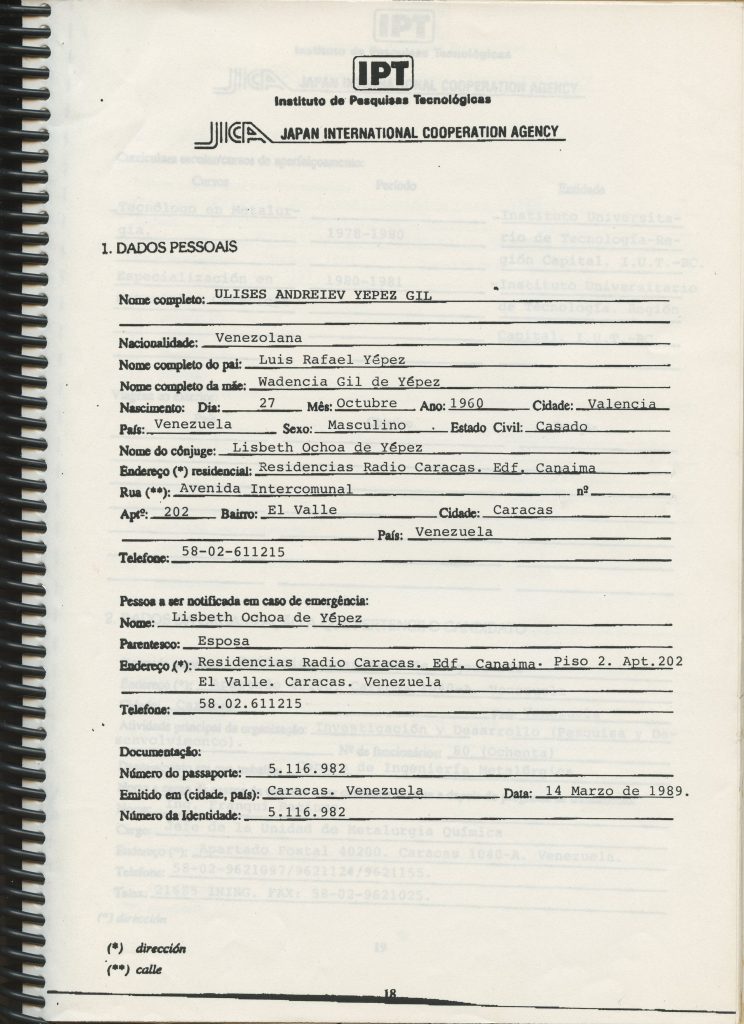 IPT
Instituto de Pesquisas Tecnológicas
JICA JAPAN INTERNATIONAL COOPERATION AGENCY
1. DADOS PESSOAIS
Nome completo: ULISES ANDREIEV YEPEZ GIL
Nacionalidade: Venezolana
Nome completo do pai: Luis Rafael Yépez
Nome completo da mãe: Wadencia Gil de Yépez
Nascimento: Dia: 27 Mês: Octubre Ano: 1960 Cidade: Valencia
País: Venezuela Sexo: Masculino . Estado Civil: Casado
Nome do cônjuge: Lisbeth Ochoa de Yépez
Endereço (*) residencial: Residencias Radio Caracas. Edf. Canaima
Rua (**): Avenida Intercomunal nº
Aptº: 202 Bairro: El Valle Cidade: Caracas
País: Venezuela
Telefone: 58-02-611215
Pessoa a ser notificada em caso de emergência:
Nome: Lisbeth Ochoa de Yépez
Parentesco: Esposa
Endereço (*): Residencias Radio Caracas. Edf. Canaima. Piso 2. Apt.202
El Valle. Caracas. Venezuela
Telefone: 58.02.611215
Documentação:
Número do passaporte: 5.116.982
Emitido em (cidade, país): Caracas. Venezuela Data: 14 Marzo de 1989.
Número da Identidade: 5.116.982
(*) dirección
(**) calle
18